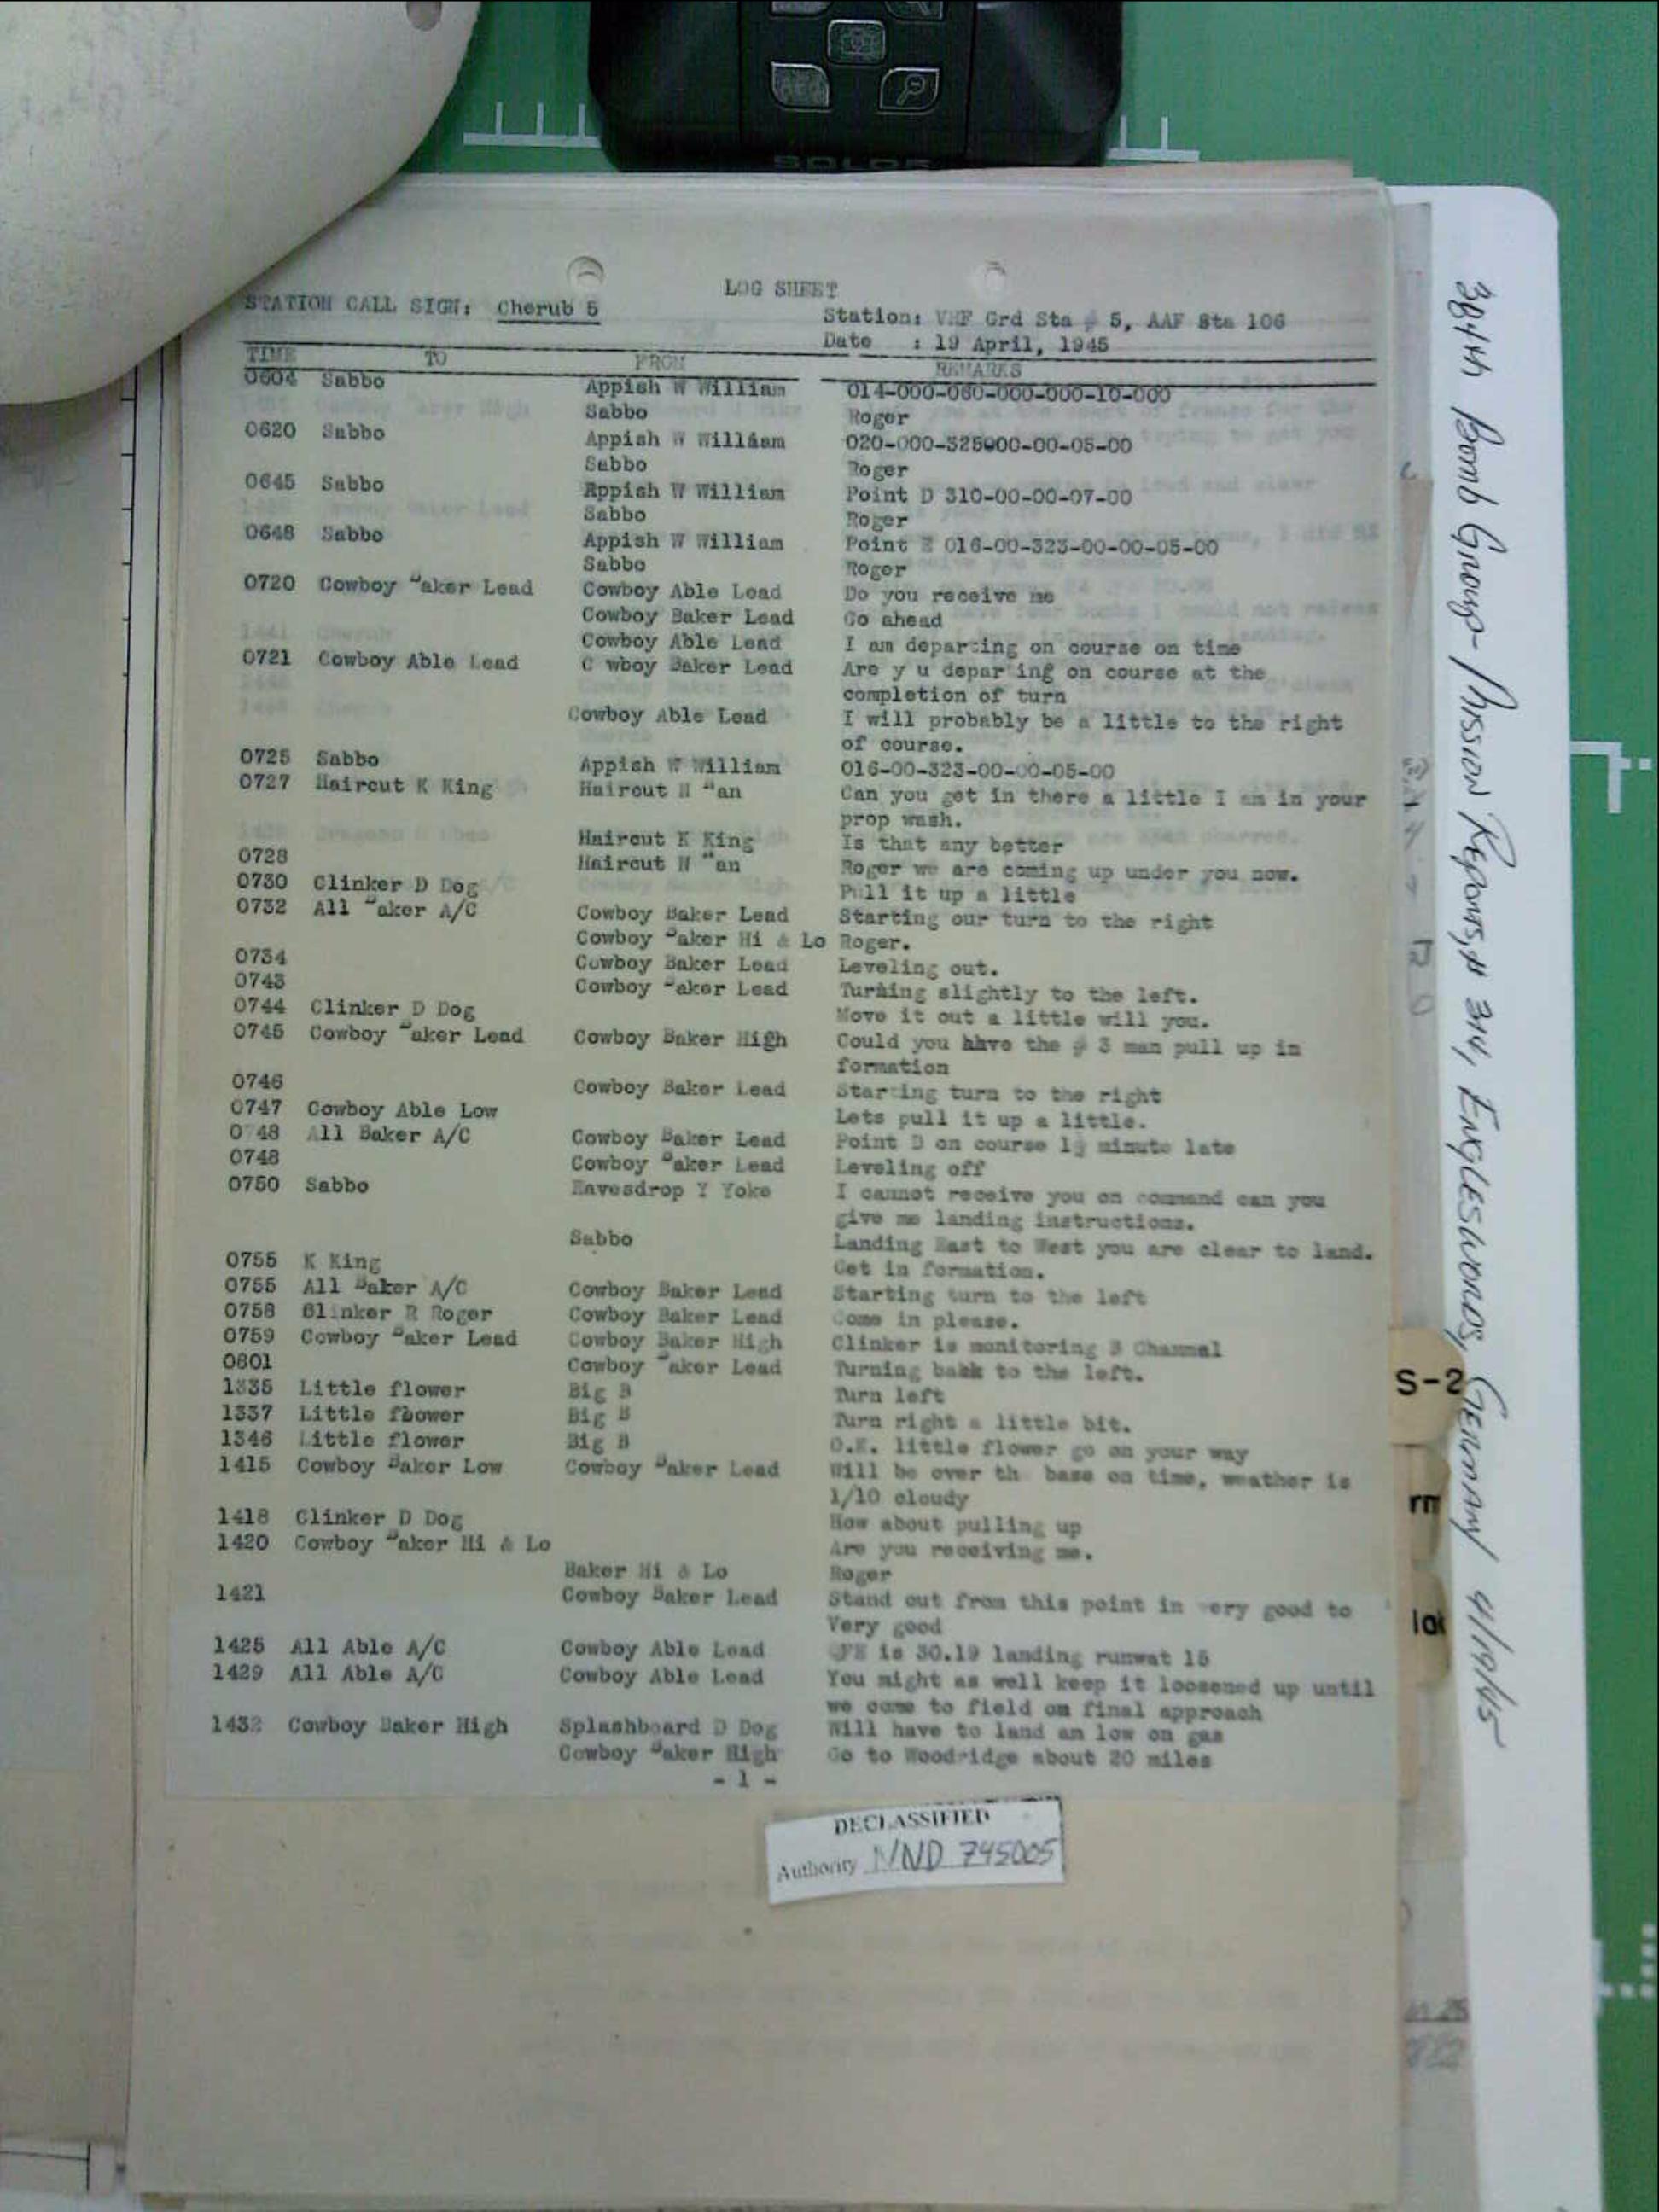 SOLOR
LOG SHEET
STATION CALL SIGN: Cherub 5
Station: VHF Grd Sta # 5, AAF Sta 106
Date : 19 April, 1945
TIME TO FROM REMARKS
0604 Sabbo Appish W William 014-000-060-000-000-10-000
Sabbo Roger
0620 Sabbo Appish W Williám 020-000-325000-00-05-00
Sabbo Roger
0645 Sabbo Appish W William Point D 310-00-00-07-00
Sabbo Roger
0648 Sabbo Appish W William Point E 016-00-323-00-00-05-00
Sabbo Roger
0720 Cowboy "aker Lead Cowboy Able Lead Do you receive me
Cowboy Baker Lead Go ahead
Cowboy Able Lead I am departing on course on time
0721 Cowboy Able Lead C wboy Baker Lead Are y u departing on course at the
completion of turn
Cowboy Able Lead I will probably be a little to the right
of course.
0725 Sabbo Appish W William 016-00-323-00-00-05-00
0727 Haircut K King Haircut N "an Can you get in there a little I am in your
prop wash.
Haircut K King Is that any better
0728 Haircut N "an Roger we are coming up under you now.
0730 Clinker D Dog Pull it up a little
0732 All "aker A/C Cowboy Baker Lead Starting our turn to the right
Cowboy "aker Hi & Lo Roger.
0734 Cowboy Baker Lead Leveling out.
0743 Cowboy "aker Lead Turning slightly to the left.
0744 Clinker D Dog Move it out a little will you.
0745 Cowboy "aker Lead Cowboy Baker High Could you have the # 3 man pull up in
formation
0746 Cowboy Baker Lead Starting turn to the right
0747 Cowboy Able Low Lets pull it up a little.
0748 All Baker A/C Cowboy Baker Lead Point D on course 1½ minute late
0748 Cowboy "aker Lead Leveling off
0750 Sabbo Eavesdrop Y Yoke I cannot receive you on command can you
give me landing instructions.
Sabbo Landing East to West you are clear to land.
0755 K King Get in formation.
0755 All "aker A/C Cowboy Baker Lead Starting turn to the left
0758 Blinker R Roger Cowboy Baker Lead Come in please.
0759 Cowboy "aker Lead Cowboy Baker High Clinker is monitoring B Channel
0801 Cowboy "aker Lead Turning bakk to the left.
1335 Little flower Big B Turn left
1337 Little flower Big B Turn right a little bit.
1346 Little flower Big B O.K. little flower go on your way
1415 Cowboy "aker Low Cowboy "aker Lead Will be over th base on time, weather is
1/10 cloudy
1418 Clinker D Dog How about pulling up
1420 Cowboy "aker Hi & Lo Are you receiving me.
Baker Hi & Lo Roger
1421 Cowboy Baker Lead Stand out from this point in very good to
Very good
1425 All Able A/C Cowboy Able Lead QFE is 30.19 landing runwat 15
1429 All Able A/C Cowboy Able Lead You might as well keep it loosened up until
we come to field on final approach
1432 Cowboy Baker High Splashboard D Dog Will have to land am low on gas
Cowboy "aker High Go to Woodridge about 20 miles
- 1 -
DECLASSIFIED
Authority NND 745005
384th Bomb Group - Mission Reports, # 314, Englesworks, Germany 4/19/45
S-2